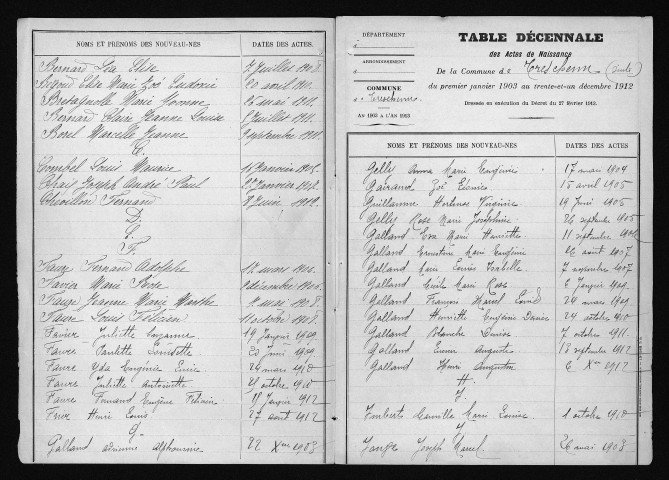 NOMS ET PRÉNOMS DES NOUVEAU-NÉS DATES DES ACTES.
Bernard Léa Elise 7 Juillet 1908.
Elise Marie Zoé Eudoxie 20 avril 1911.
Bretagnole Marie Yvonne 25 mai 1911.
Bernard Claire Jeanne Louise Juillet 1911.
Borel Marcelle Jeanne septembre 1911.
C.
Combel Louis Maurice Janvier
Joseph André Paul Janvier 1912.
Fernand Juin 1912.
D.
E.
F.
Faure Fernand Adolphe 18 mars
Favier Marie Rose décembre
Faure Jeanne Marie Marthe mai 1908.
Faure Louis octobre 1908.
Favier Juliette Suzanne 19 Janvier 1909
Faure Paulette Louisette 20 juin 1909
Faure Yda Eugénie 26 mars 1910
Faure Juliette Antoinette 21 octobre 1910
Faure Fernand Eugène 18 Janvier 1912
Henri Louis 27 août 1912
G.
Galland Adrienne Alphonsine Xbre 1903
DÉPARTEMENT
ARRONDISSEMENT
COMMUNE
AN 1903 A L'AN 1913
TABLE DÉCENNALE
des Actes de Naissance
De la Commune d e Treschenu
du premier janvier 1903 au trente-et-un décembre 1912
Dressée en exécution du Décret du 27 février 1913.
NOMS ET PRÉNOMS DES NOUVEAU-NÉS DATES DES ACTES
Gelly Anna Marie Eugénie 17 mai 1904
Zoé 15 avril 1905
Guillaume Hortense Virginie 19 Juin 1905
Gelly Rose Marie Joséphine 26 septembre 1905
Galland Eva Marie Henriette 11 septembre
Galland Ernestine Marie Eugénie 26 août 1907
Galland Marie Louise Isabelle 7 septembre 1907
Galland Cécile Marie Rose 6 Janvier 1909
Galland François Marcel Louis 24 mars 1909
Galland Henriette Eugénie Denise 24 octobre 1910
Galland Blanche Denise 7 octobre 1911
Galland Emma Augusta 13 septembre 1912
Galland Henri Augustin 6 Xbre 1912
H.
I.
Imbert Camille Marie Louise 1 octobre 1910
J
Joseph Marcel 26 mai 1903